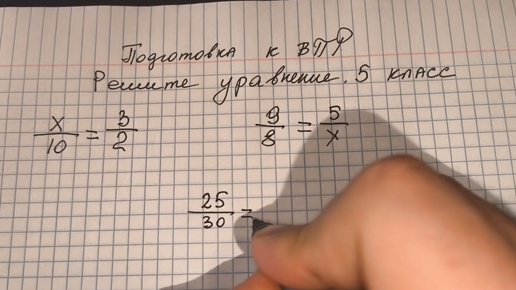 Подготовка к ВПР
Решите уравнение. 5 класс
x/10 = 3/2
9/8 = 5/x
25/30 =